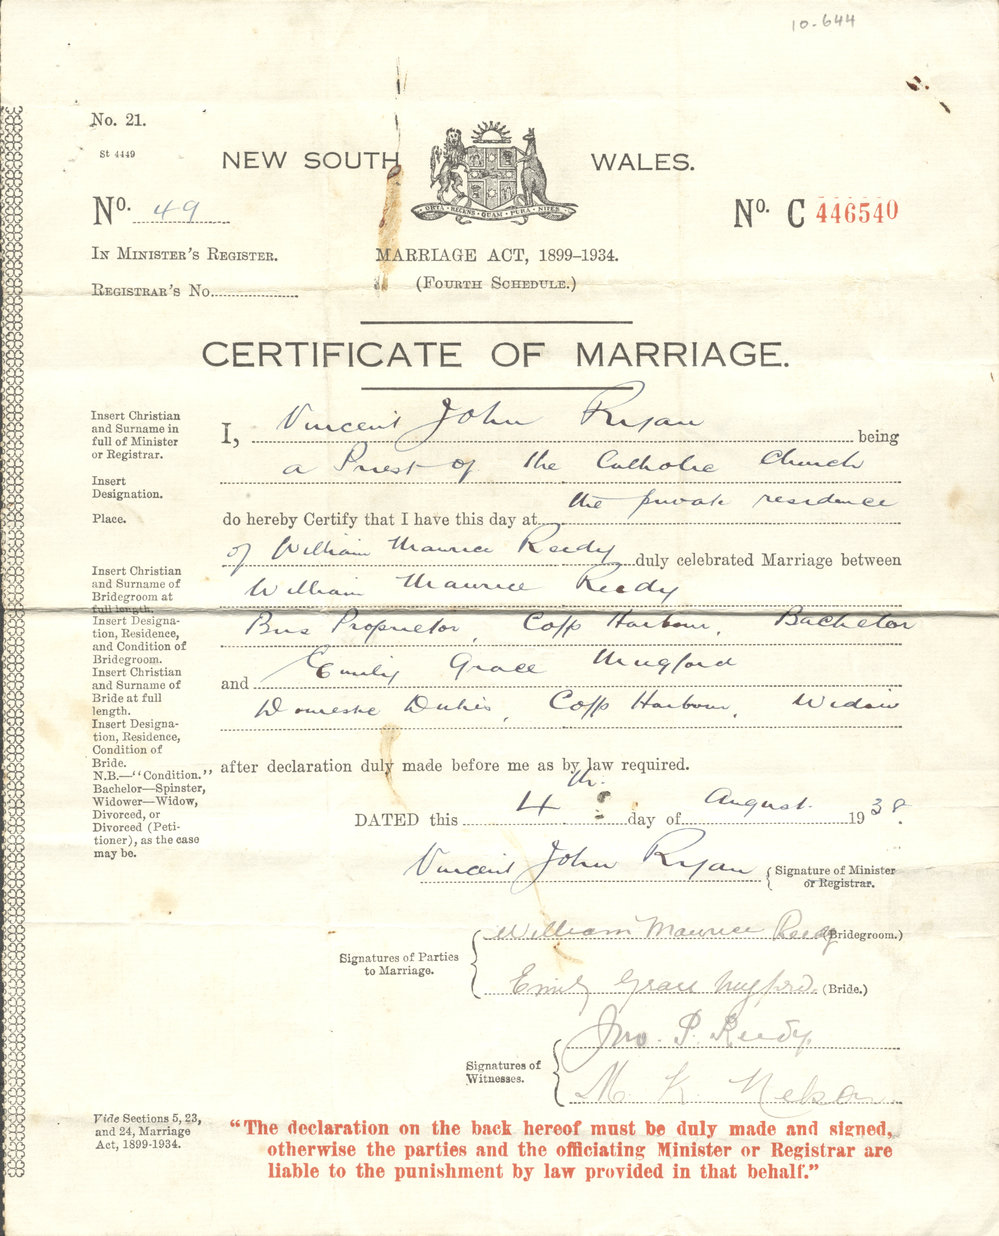 10-644
No. 21.
St 4449
NEW SOUTH WALES.
ORTA RECENS QUAM PURA NITES
No. 49
No. C 446540
In Minister's Register.
MARRIAGE ACT, 1899–1934.
Registrar's No.
(Fourth Schedule.)
CERTIFICATE OF MARRIAGE.
Insert Christian
and Surname in
full of Minister
or Registrar.
I, Vincent John Ryan being
Insert
Designation.
a Priest of the Catholic Church
Place.
do hereby Certify that I have this day at the private residence
of William Maurice Reedy duly celebrated Marriage between
Insert Christian
and Surname of
Bridegroom at
full length.
William Maurice Reedy
Insert Designa-
tion, Residence,
and Condition of
Bridegroom.
Bus Proprietor, Coffs Harbour, Bachelor
Insert Christian
and Surname of
Bride at full
length.
and Emily Grace Mugford
Insert Designa-
tion, Residence,
Condition of
Bride.
Domestic Duties, Coffs Harbour, Widow
N.B.—"Condition."
Bachelor—Spinster,
Widower—Widow,
Divorced, or
Divorced (Peti-
tioner), as the case
may be.
after declaration duly made before me as by law required.
DATED this 4th. day of August 1938.
Vincent John Ryan { Signature of Minister
or Registrar.
Signatures of Parties
to Marriage.
William Maurice Reedy (Bridegroom.)
Emily Grace Mugford. (Bride.)
Signatures of
Witnesses.
Jno. P. Reedy.
M K Nelson
Vide Sections 5, 23,
and 24, Marriage
Act, 1899-1934.
"The declaration on the back hereof must be duly made and signed,
otherwise the parties and the officiating Minister or Registrar are
liable to the punishment by law provided in that behalf."